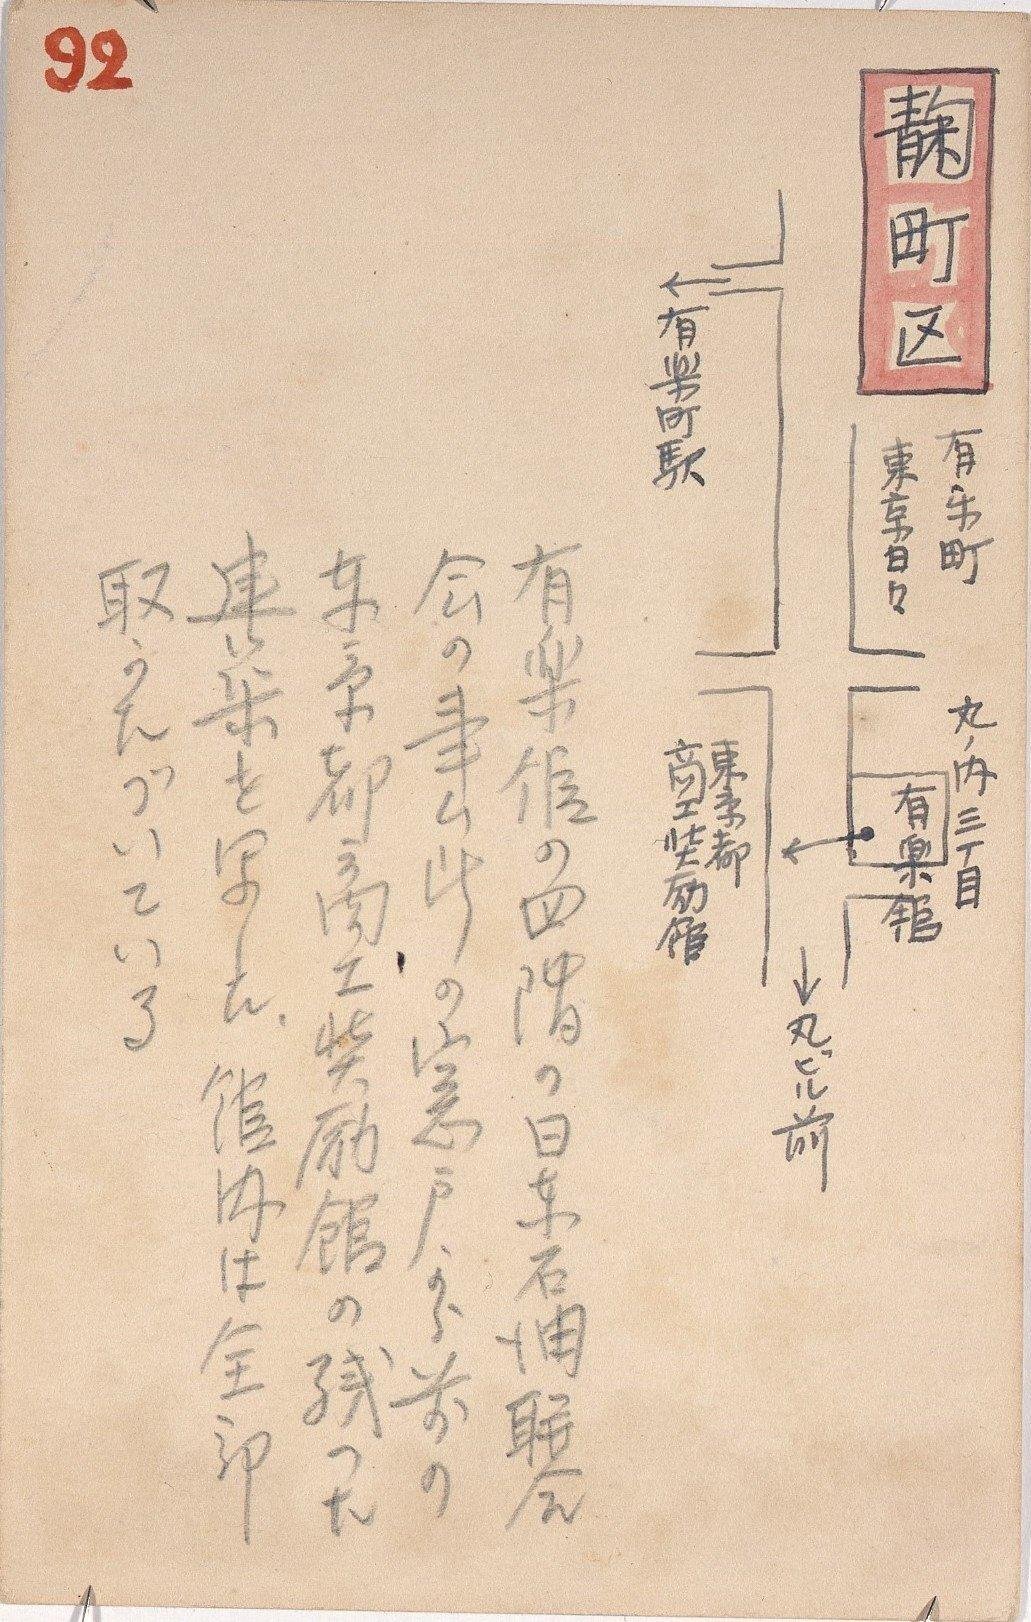 92
麹町区
有楽町
東京日々
有楽町駅
丸ノ内三丁目
有楽館
東京都
商工奨励館
丸ビル前
有楽館の四階の日東石油聯合
会の事ム所の窓戸から前の
東京都商工奨励館の残った
建築を写した、館内は全部
取かたづいている